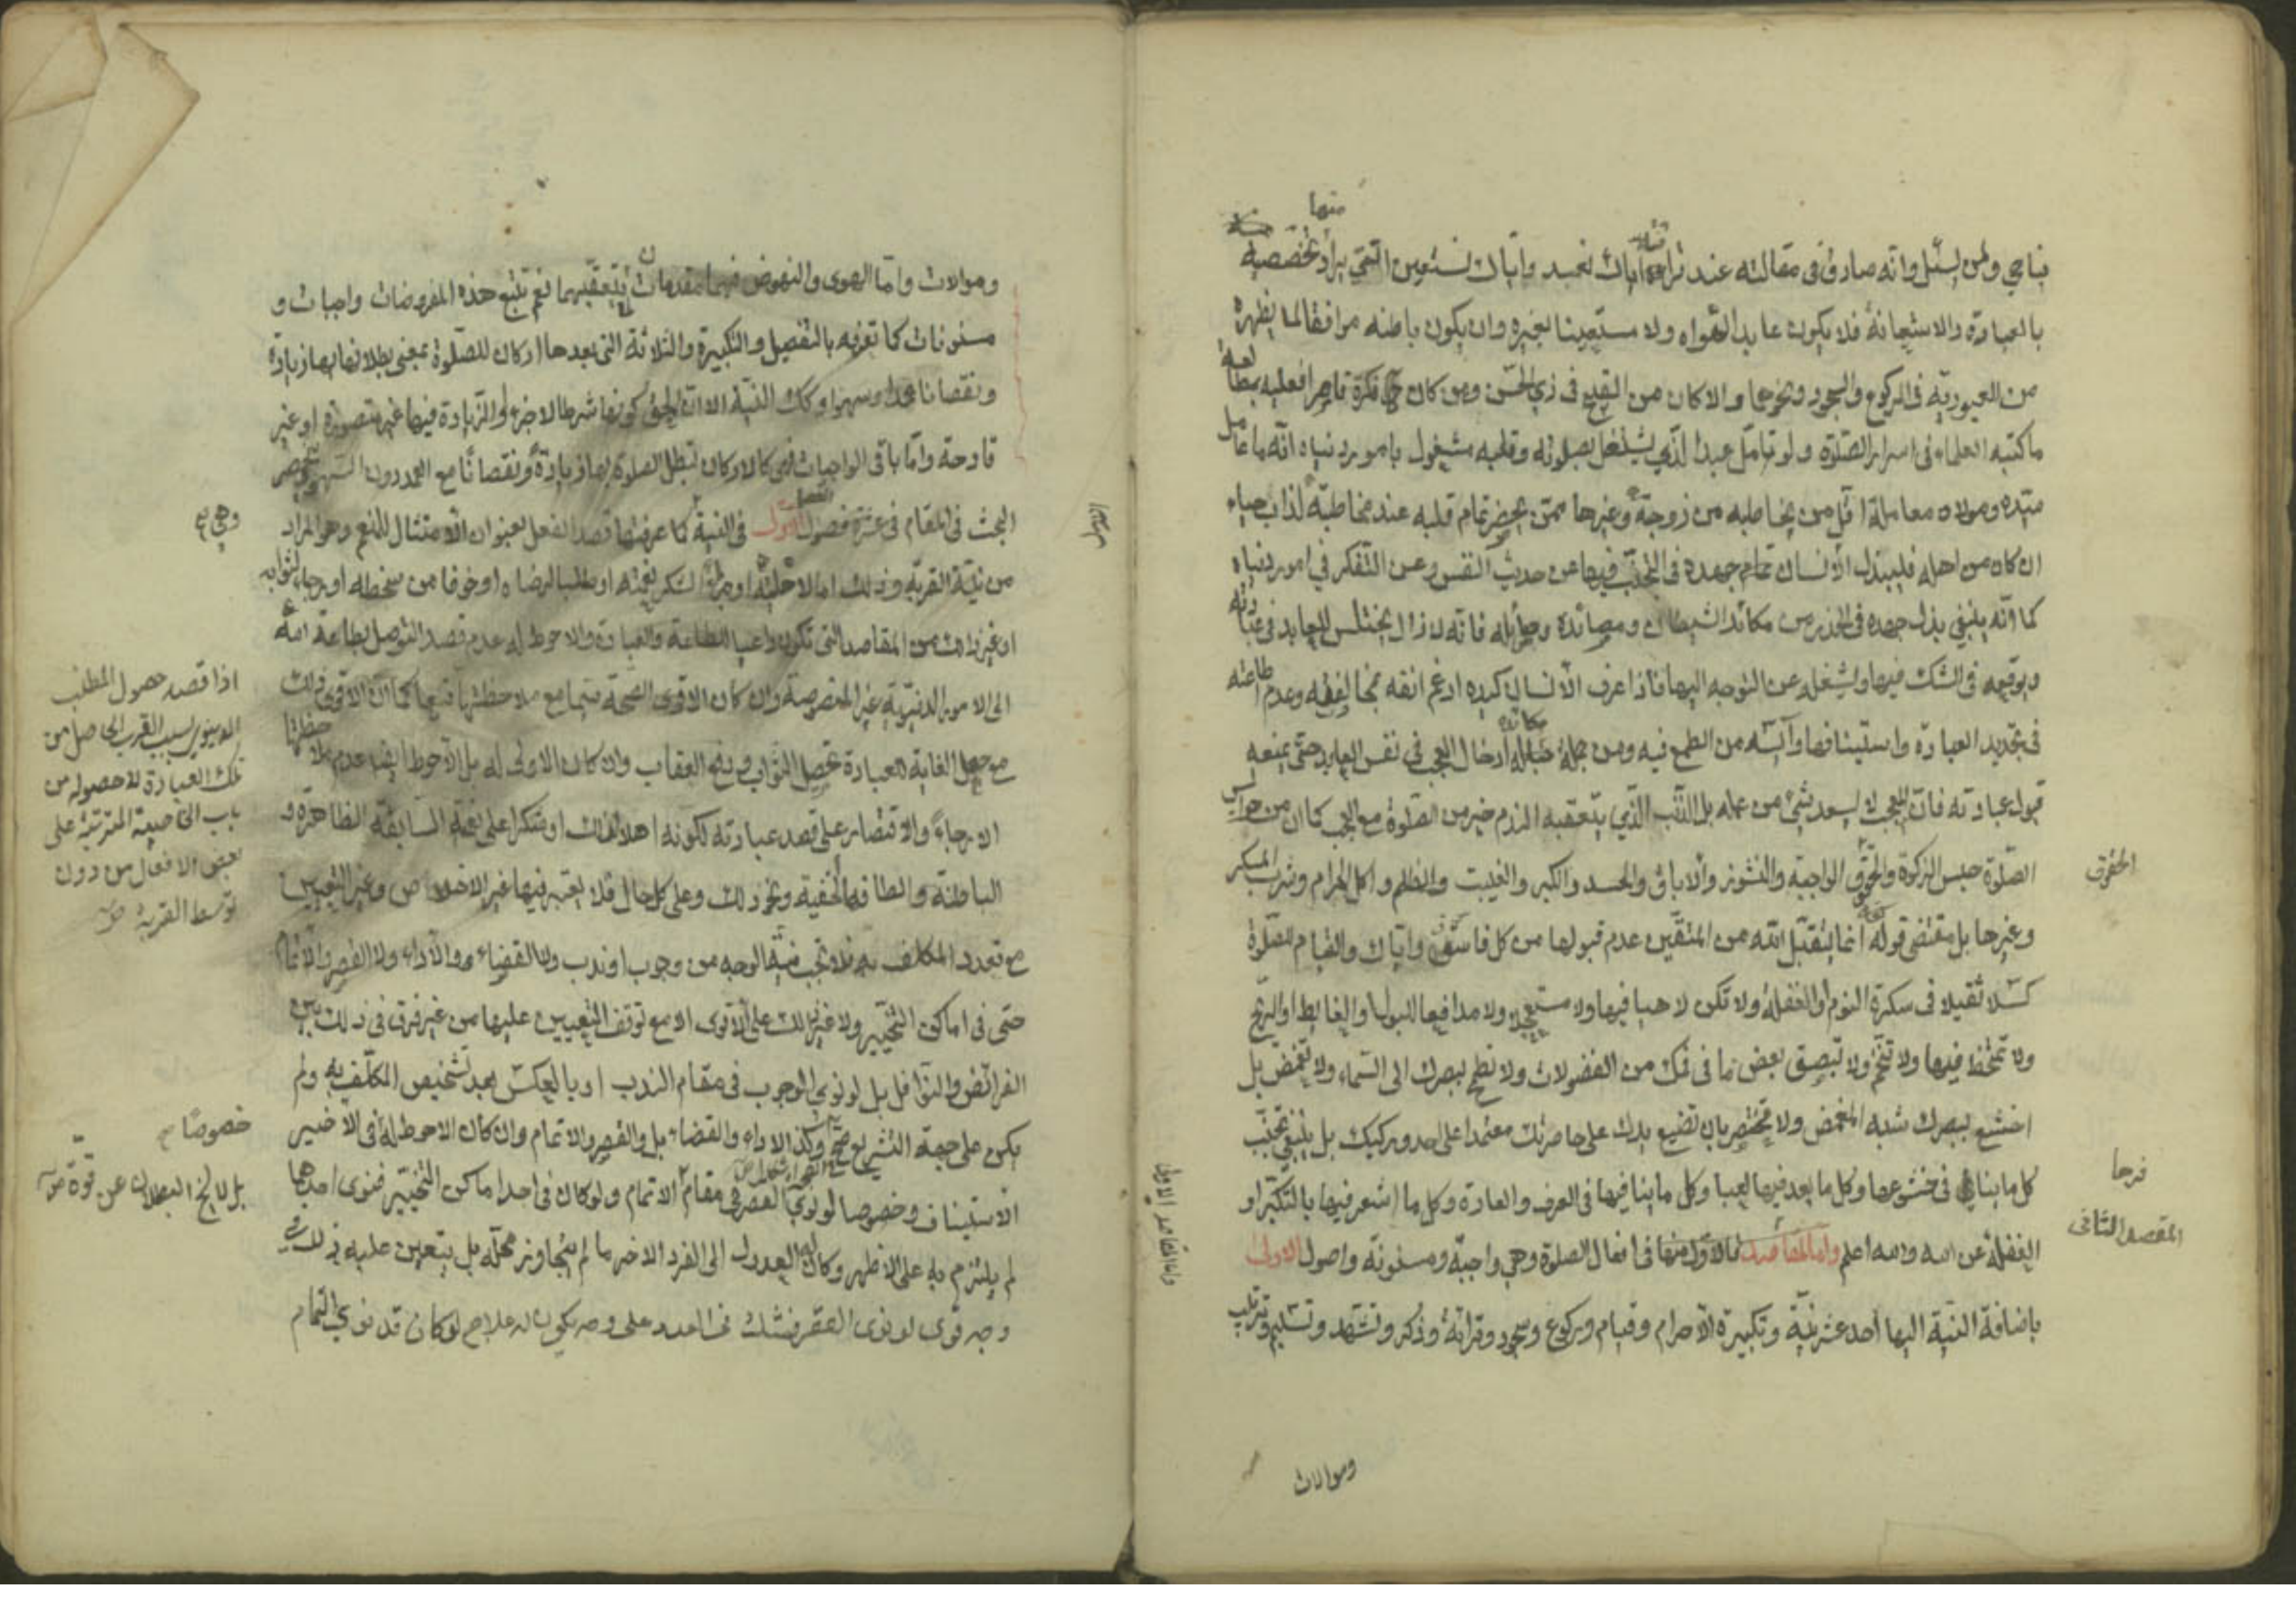 منها
يناجي ولمن يسئل وانه صادق في مقالته عند قرائة اياك نعبد واياك نستعين التي يراد تخصصيه
بالعبادة والاستعانة فلا يكون عابدا لهواه ولا مستعينا بغيره وان يكون باطنه موافقا لما يظهره
من العبودية في الركوع والسجود ونحوهما والا كان من القبيح في زي الحسن ومن كان فكره قاصرا فعليه بمطالعة
ما كتبه العلماء في اسرار الصلوة ولو تامل عبدا لذي يشتغل بصلوته وقلبه مشغول بامور دنياه انه ما عامل
سيده ومولاه معاملة اقل من يخاطبه من زوجة وغيرها ممن يحضر تمام قلبه عند مخاطبته لذاب حياء
ان كان من اهله فليبذل الانسان تمام جهده في التجنب فيها عن حديث النفس وعن التفكر في امور دنياه
كما انه ينبغي بذل جهده في الحذر من مكائد الشيطان ومصائده وحبائله فانه لا زال يختلس للعابد في عبادته
ويوقعه في الشك فيها ويشغله عن التوجه اليها فاذا عرف الانسان كيده ارغم انفه بمخالفته وعدم طاعته
في تجديد العبادة واستينافها وآيسه من الطمع فيه ومن جملة مكائده ادخال العجب في نفس العابد حتى يمنعه
قبول عبادته فان العجب لا يسعد بشئ من عمله بل الذنب الذي يتعقبه الندم خير من الصلوة مع العجب كما ان من حوابس
الصلوة حبس الزكوة والحقوق الواجبة والنشوز والاباق والحسد والكبر والغيبت والظلم واكل الحرام وشرب المسكر
الحقوق
وغيرها بل مقتضى قوله انما يتقبل الله من المتقين عدم قبولها من كل فاسق واياك والقيام للصلوة
كسلا ثقيلا في سكرة النوم والغفلة ولا تكن لاهيا فيها ولا مستعجلا ولا مدافعا للبول والغايط والريح
ولا تمخط فيها ولا تتنخم ولا تبصق بعض ما في فمك من الفضولات ولا تطمح ببصرك الى السماء ولا تغمض بل
اخشع ببصرك شبه المغمض ولا تختصر بان تضع يدك على خاصرتك معتمدا على احد وركيك بل ينبغي تجنب
كل ما ينافي في خشوعها وكل ما يعد فيها لعبا وكل ما ينافيها في العرف والعادة وكل ما اشعر فيها بالتكبر او
فرحا
المقصد الثاني
الغفلة عن الله والله اعلم واما المقاصد فالاول منها في افعال الصلوة وهي واجبة ومسنونة واصول الاولى
باضافة النية اليها احد عشر نية وتكبيرة الاحرام وقيام وركوع وسجود وقرائة وذكر وتشهد وتسليم وترتيب
وموالات
وموالات واما الهوى والنهوض فهما مقدمات يتعقبهما نعم تتبع هذه المفروضات واجبات و
مسنونات كما تعرفه بالتفصيل والتكبيرة والثلاثة التي بعدها اركان للصلوة بمعنى بطلانها بها زيادة
ونقصانا عمدا وسهوا وكك النية الا ان الحق كونها شرطا لا جزء والزيادة فيها غير متصورة او غير
قادحة واما باقي الواجبات فهي كالاركان تبطل الصلوة بها زيادة ونقصانا مع العمد دون السهو وينحصر
البحث في المقام في عشرة فصول الاول في النية كما عرفتها قصد الفعل بعنوان الامتثال للمنعم وهو المراد
وهي
من نية القربة وذلك اما لاهليته او لشكر نعمته او طلبا لرضاه او خوفا من سخطه او رجاء لثوابه
او غير ذلك من المقاصد التي تكون داعيا لطاعة والعبادة والاحوط له عدم قصد التوصل بطاعة الله
الى الامور الدنيوية غير المنصوصة وان كان الاقوى الصحة سيما مع ملاحظتها تبعا كما ان الاقوى ذلك
مع جعل الغاية للعبادة تحصيل الثواب ودفع العقاب وان كان الاولى له بل الاحوط ايضا عدم ملاحظتها
الا رجاء والاقتصار على قصد عبادته لكونه اهلا لذلك او شكرا على نعمه السابقة الظاهرة و
الباطنة والطافه الخفية ونحو ذلك وعلى كل حال فلا يعتبر فيها غير الاخلاص وغير التعيين
مع تعدد المكلف به فلا تجب نية الوجه من وجوب او ندب ولا القضاء والاداء ولا القصر والاتمام
حتى في اماكن التخيير ولا غير ذلك على الاقوى الا مع توقف التعيين عليها من غير فرق في ذلك بين
الفرائض والنوافل بل لو نوى الوجوب في مقام الندب او بالعكس بعد تشخيص المكلف به ولم
يكن على جهة التشريع صح وكذا الاداء والقضاء بل والقصر والاتمام وان كان الاحوط له في الاخير
الاستيناف وخصوصا لو نوى القصر في مقام الاتمام ولو كان في احد اماكن التخيير فنوى احدهما
لم يلتزم به على الاظهر وكان له العدول الى الفرد الاخر ما لم يتجاوز محله بل يتعين عليه ذلك في
وجه قوى لو نوى القصر فشك في العدد على وجه يكون له علاج لو كان قد نوى التمام
اذا قصد حصول المطلب
الدنيوي بسبب القرب الحاصل من
تلك العبادة لا حصوله من
باب الخاصية المترتبة على
بعض الافعال من دون
توسط القربة
خصوصا
بل لا يخ البطلان عن قوة